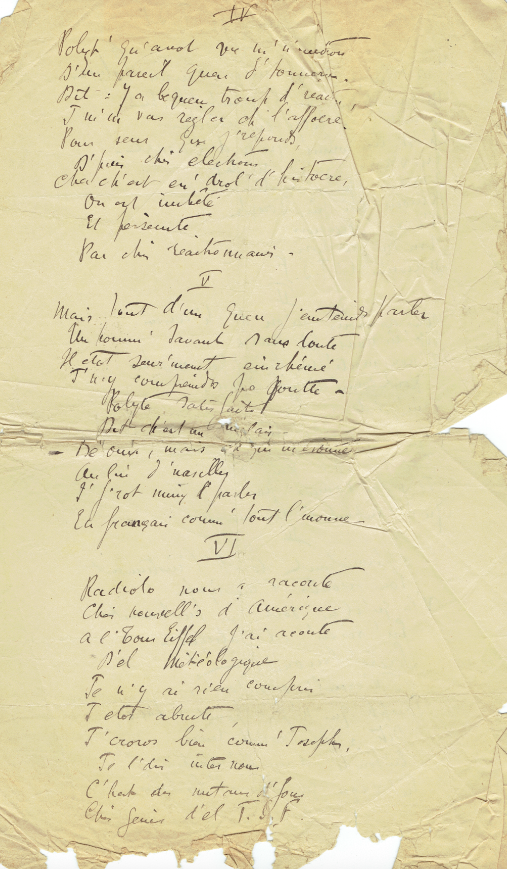 IV
Polyt' qu'avot vu m'n'
D'un parell' queu d'tonnerre.
Dit : Y a l'équeu trop d'réac,
J'm'in vas régler ch'l'affoere!
Pour seur que j'réponds,
D'puis chés élections
Cha ch'est en' drol' d'histoere,
On est imbêté
Et persécuté
Par chés réactionnaires -
V
Mais tout d'un queu j'entends parler
Un homme savant sans doute
Il étot seur'ment einrhémé
J'n'y comprindos pas goutte -
Polyte satisfait
Dit ch'est un
, mais
Au lieu d'nasiller
I' f'rot miux l'parler
En français comm' tout l'monne -
VI
Radiolo nous a raconté
Chés nouvell's d'Amérique
A l'Tour Eiffel j'ai acouté
D'el Météologique
Je n'y ai rien compris
J'étot abruti
J'croros bien comm' Josephe,
Je l'dis inter nous
C'hest des
Chés genis d'el T.S.F.